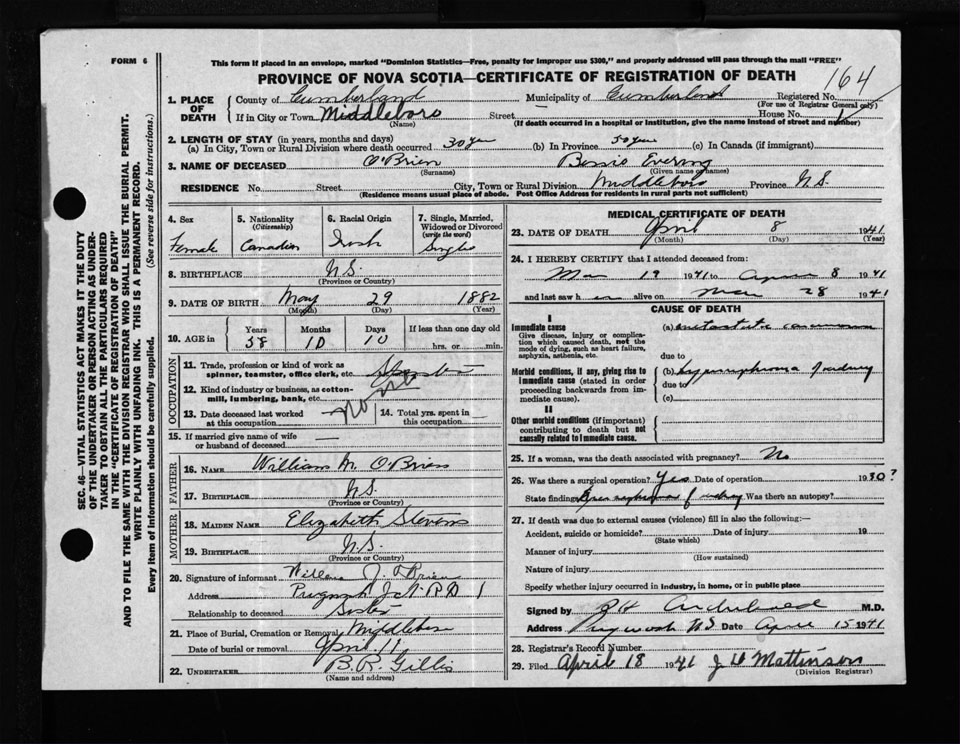 FORM 6
This form if placed in an envelope, marked "Dominion Statistics—Free, penalty for improper use $300," and properly addressed will pass through the mail "FREE"
PROVINCE OF NOVA SCOTIA—CERTIFICATE OF REGISTRATION OF DEATH
164
1. PLACE OF DEATH
County of Cumberland Municipality of Cumberland Registered No.
(For use of Registrar General only)
If in City or Town Middleboro Street House No.
(Name) (If death occurred in a hospital or institution, give the name instead of street and number)
2. LENGTH OF STAY (in years, months and days)
(a) In City, Town or Rural Division where death occurred 30 yrs (b) In Province 50 yrs (c) In Canada (if immigrant)
3. NAME OF DECEASED O'Brien Bessie
(Surname) (Given name or names)
RESIDENCE No. Street City, Town or Rural Division Middleboro Province N.S.
(Residence means usual place of abode. Post Office Address for residents in rural parts not sufficient)
4. Sex
Female
5. Nationality
(Citizenship)
Canadian
6. Racial Origin
Irish
7. Single, Married, Widowed or Divorced
(write the word)
Single
8. BIRTHPLACE N.S.
(Province or Country)
9. DATE OF BIRTH May 29 1882
(Month) (Day) (Year)
10. AGE in
Years Months Days If less than one day old
58 10 10 hrs. or min.
OCCUPATION
11. Trade, profession or kind of work as
spinner, teamster, office clerk, etc.
12. Kind of industry or business, as cotton-
mill, lumbering, bank, etc. none
13. Date deceased last worked
at this occupation
14. Total yrs. spent in
this occupation
15. If married give name of wife
or husband of deceased —
FATHER
16. NAME William M. O'Brien
17. BIRTHPLACE N.S.
(Province or Country)
MOTHER
18. MAIDEN NAME Elizabeth Stevens
19. BIRTHPLACE N.S.
(Province or Country)
20. Signature of informant O'Brien
Address Pugwash Jct. RD 1
Relationship to deceased Sister
21. Place of Burial, Cremation or Removal Middleboro
Date of burial or removal April 11
22. UNDERTAKER B. R. Gillis
(Name and address)
MEDICAL CERTIFICATE OF DEATH
23. DATE OF DEATH April 8 1941
(Month) (Day) (Year)
24. I HEREBY CERTIFY that I attended deceased from:
Mar 19 1941 to April 8 1941
and last saw her alive on Mar 28 1941
CAUSE OF DEATH
I
Immediate cause
Give disease, injury or complication which caused death, not the mode of dying, such as heart failure, asphyxia, asthenia, etc.
(a) metastatic carcinoma
due to
Morbid conditions, if any, giving rise to immediate cause (stated in order proceeding backwards from immediate cause).
(b) hypernephroma of kidney
due to
(c)
II
Other morbid conditions (if important) contributing to death but not causally related to immediate cause.
25. If a woman, was the death associated with pregnancy? No
26. Was there a surgical operation? Yes Date of operation 1930?
State findings hypernephroma of kidney Was there an autopsy?
27. If death was due to external causes (violence) fill in also the following:—
Accident, suicide or homicide? Date of injury 19
(State which)
Manner of injury
(How sustained)
Nature of injury
Specify whether injury occurred in industry, in home, or in public place
Signed by Archibald M.D.
Address Pugwash NS Date April 15 1941
28. Registrar's Record Number
29. Filed April 18 1941 J. D. Mattinson
(Division Registrar)
SEC. 46—VITAL STATISTICS ACT MAKES IT THE DUTY
OF THE UNDERTAKER OR PERSON ACTING AS UNDER-
TAKER TO OBTAIN ALL THE PARTICULARS REQUIRED
IN THE "CERTIFICATE OF REGISTRATION OF DEATH"
AND TO FILE THE SAME WITH THE DIVISION REGISTRAR WHO SHALL ISSUE THE BURIAL PERMIT.
WRITE PLAINLY WITH UNFADING INK. THIS IS A PERMANENT RECORD.
Every item of information should be carefully supplied. (See reverse side for instructions.)